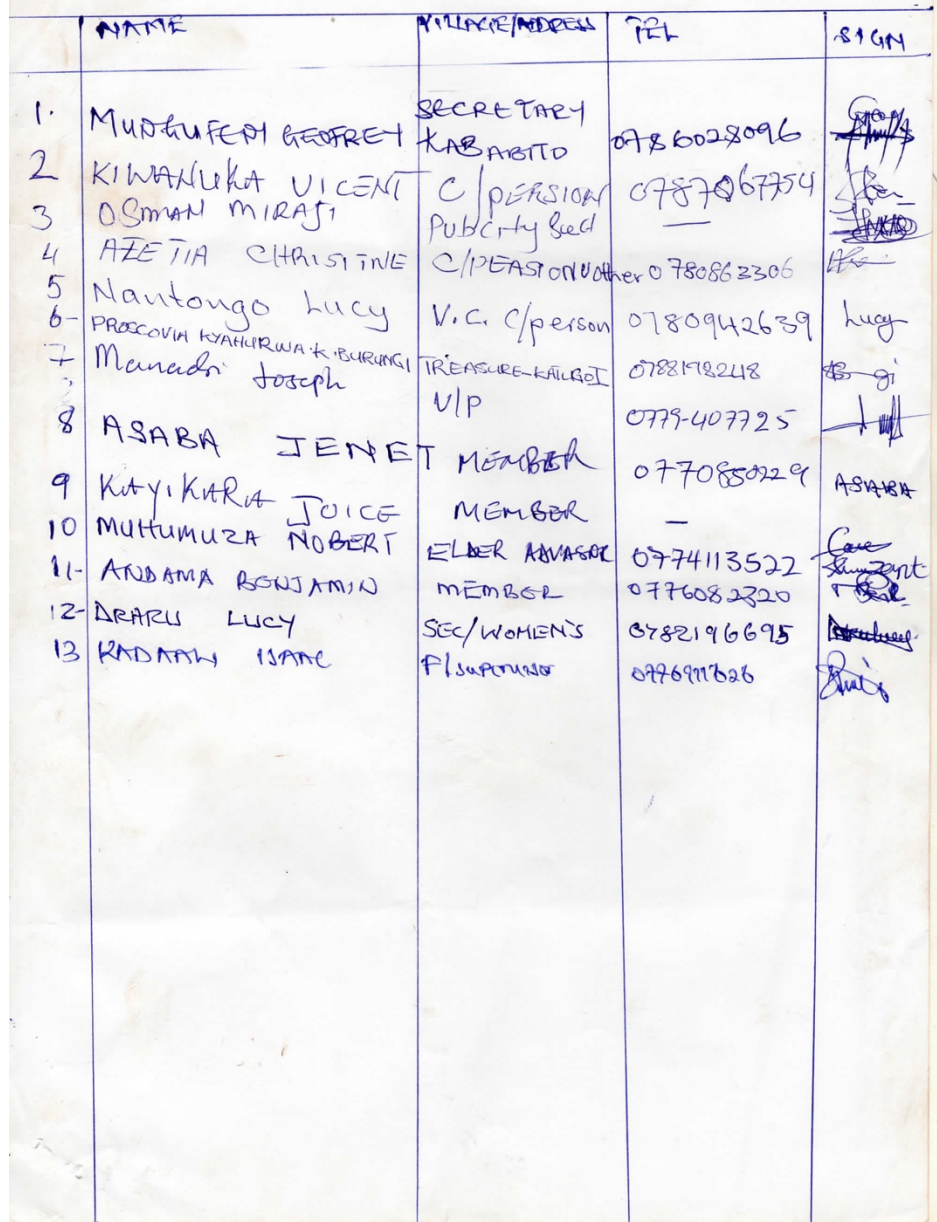 NAME VILLAGE/ADDRESS TEL SIGN
1. MUDGUFENI GEOFREY SECRETARY KABABITO 0786028096
2 KIWANUKA VICENT C/PERSION 0787067754
3 OSMAN MIRAJI Pubcity Sed —
4 AZETIA CHRISTINE C/PEASION other 0780863306
5 Nantongo Lucy V.C. C/person 0780942639 Lucy
6- PROSCOVIA KYAHURWA.K.BURUNGI TREASURE-KAILBOI 0788178248
7 Manadri Joseph V/P 0779-407725
8 ASABA JENET MEMBER 0770850229 ASABA
9 KAYIKARA JOICE MEMBER —
10 MUHUMUZA NOBERT ELDER 0774113522
11- ANDAMA BENJAMIN MEMBER 0776082320
12- DRARU LUCY SEC/WOMEN'S 0782196695
13 ISAAC